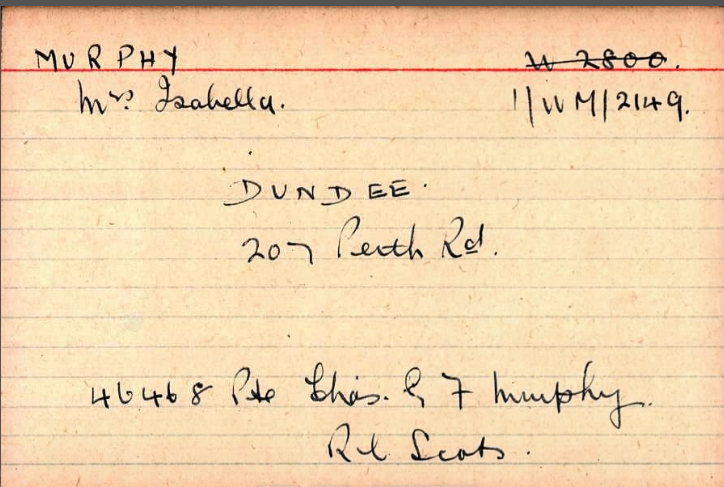 MURPHY W 2800.
Mrs Isabella. 1/WM/2149.
DUNDEE.
207 Perth Rd.
46468 Pte Chas. G F Murphy.
Rl Scots.